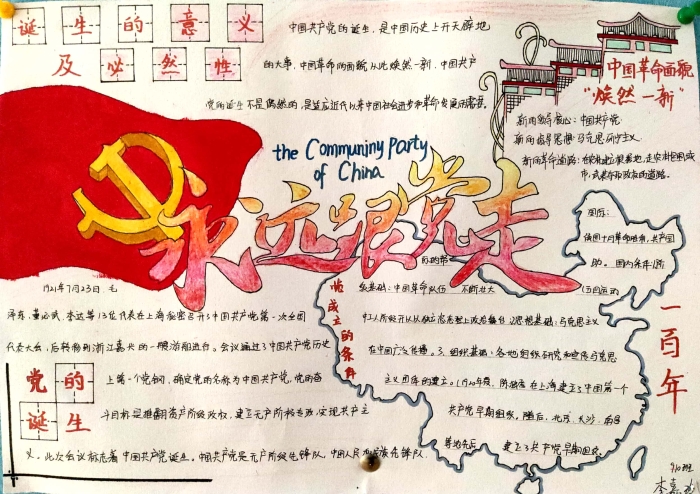 诞生的意义
及必然性
中国共产党的诞生，是中国历史上开天辟地
的大事，中国革命的面貌从此焕然一新，中国共产
党的诞生不是偶然的，是适应近代以来中国社会进步和革命发展的需要。
中国革命面貌
"焕然一新"
新的领导核心：中国共产党
新的指导思想：马克思列宁主义
新的革命道路：在农村建立根据地，走农村包围城
市，武装夺取政权的道路。
the Communiny Party
of China
永远跟党走
1921年7月23日，毛
泽东、董必武、李达等13位代表在上海秘密召开了中国共产党第一次全国
代表大会，后转移到浙江嘉兴的一艘游船进行。会议通过了中国共产党历史
党的
诞生
上第一个党纲，确定党的名称为中国共产党，党的奋
斗目标是推翻资产阶级政权，建立无产阶级专政，实现共产主
义。此次会议标志着中国共产党诞生。中国共产党是无产阶级先锋队，中国人民
先锋队
成立的条件
俄国十月革命胜利，共产国
助。国内条件：1.阶
级基础：中国革命队伍不断壮大
2.思想基础：马克思主义
在中国广泛传播。3.组织基础：各地组织研究和宣传马克思
主义团体的建立。1920年夏，陈独秀在上海建立了中国第一个
共产党早期组织，随后，北京、长沙
等地先后
建立了共产党早期组织
一百年
910班
李嘉